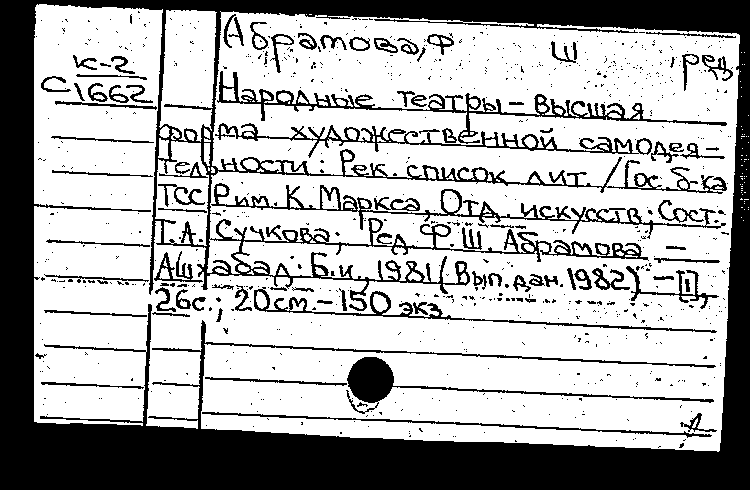 Абрамова, Ф Ш ред.
К-2
С1662
Народные театры - высшая
форма художественной самодея-
тельности: Рек. список лит. / Гос. б-ка
ТССР им. К. Маркса, Отд. искусств; Сост.:
Т.А. Сучкова; Ред. Ф.Ш. Абрамова -
Ашхабад: Б.и., 1981 (Вып. дан. 1982) - [1],
26с.; 20см. - 150 экз.